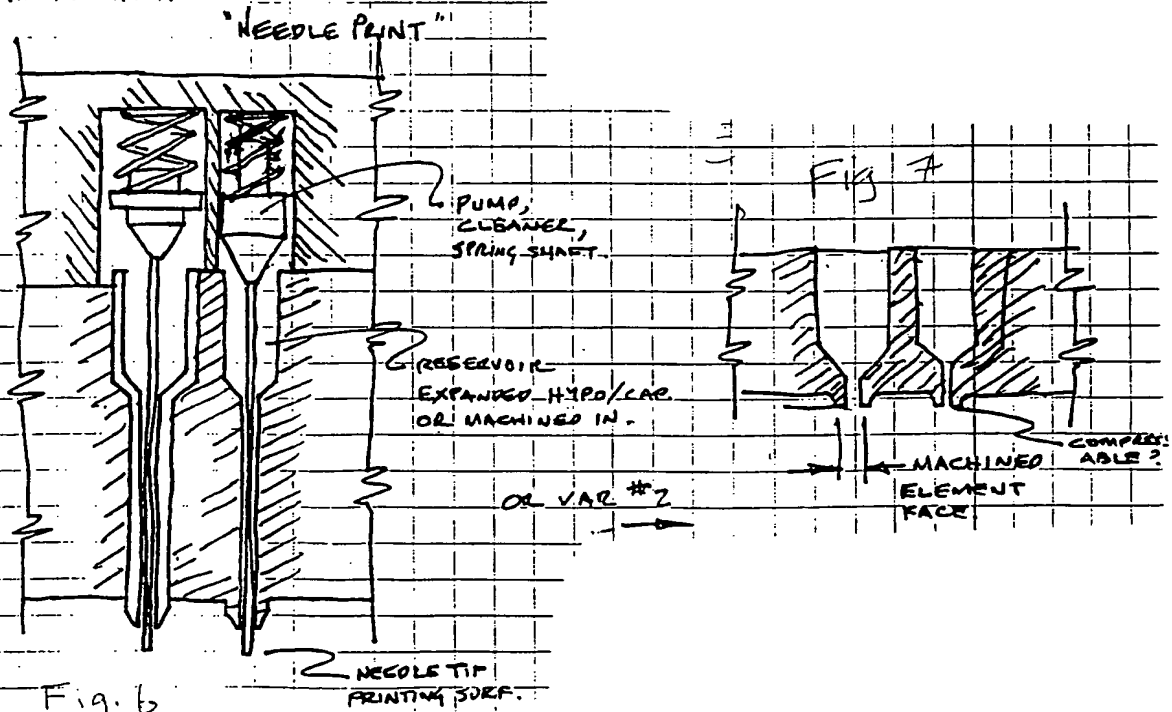 "NEEDLE PRINT"
PUMP,
CLEANER,
SPRING SHAFT.
RESERVOIR
EXPANDED HYPO/CAP.
OR MACHINED IN.
OR VAR #2
NEEDLE TIP
PRINTING SURF.
Fig. 6
Fig 7
COMPRESS
ABLE?
MACHINED
ELEMENT
FACE